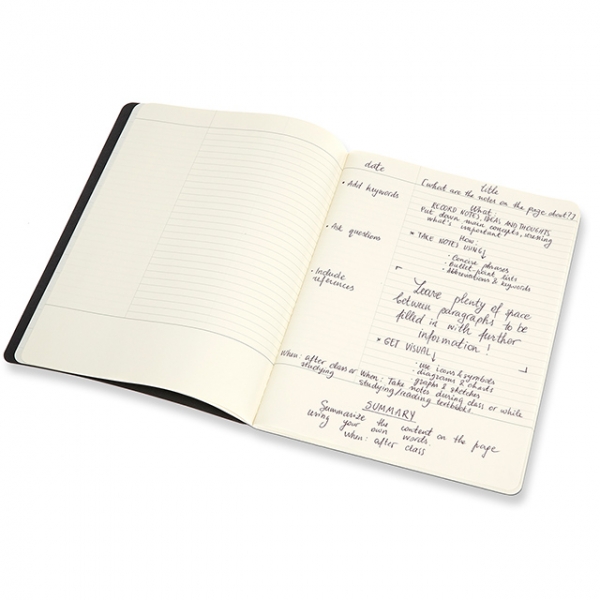 date
title
[what are the notes on the page about?]
• Add keywords
• Ask questions
• Include
references
When: after class or
studying
What:
RECORD NOTES, IDEAS AND THOUGHTS
Put down main concepts,
what's important
How:
* TAKE NOTES USING ↓
• Concise phrases
• Bullet-point lists
• Abbreviations & keywords
Leave plenty of space
between paragraphs to be
filled in with further
information!
* GET VISUAL ↓
• use icons & symbols
• diagrams & charts
• graphs & sketches
When: Take notes during class or while
studying/reading textbooks
SUMMARY
Summarize the content on the page
using your own words.
When: after class